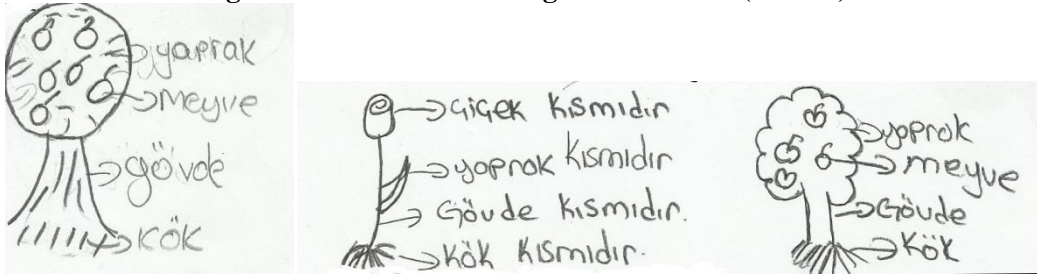 yaprak
meyve
gövde
kök
Çiçek Kısmıdır
yaprak Kısmıdır
Gövde Kısmıdır.
Kök Kısmıdır.
yaprak
meyve
Gövde
Kök